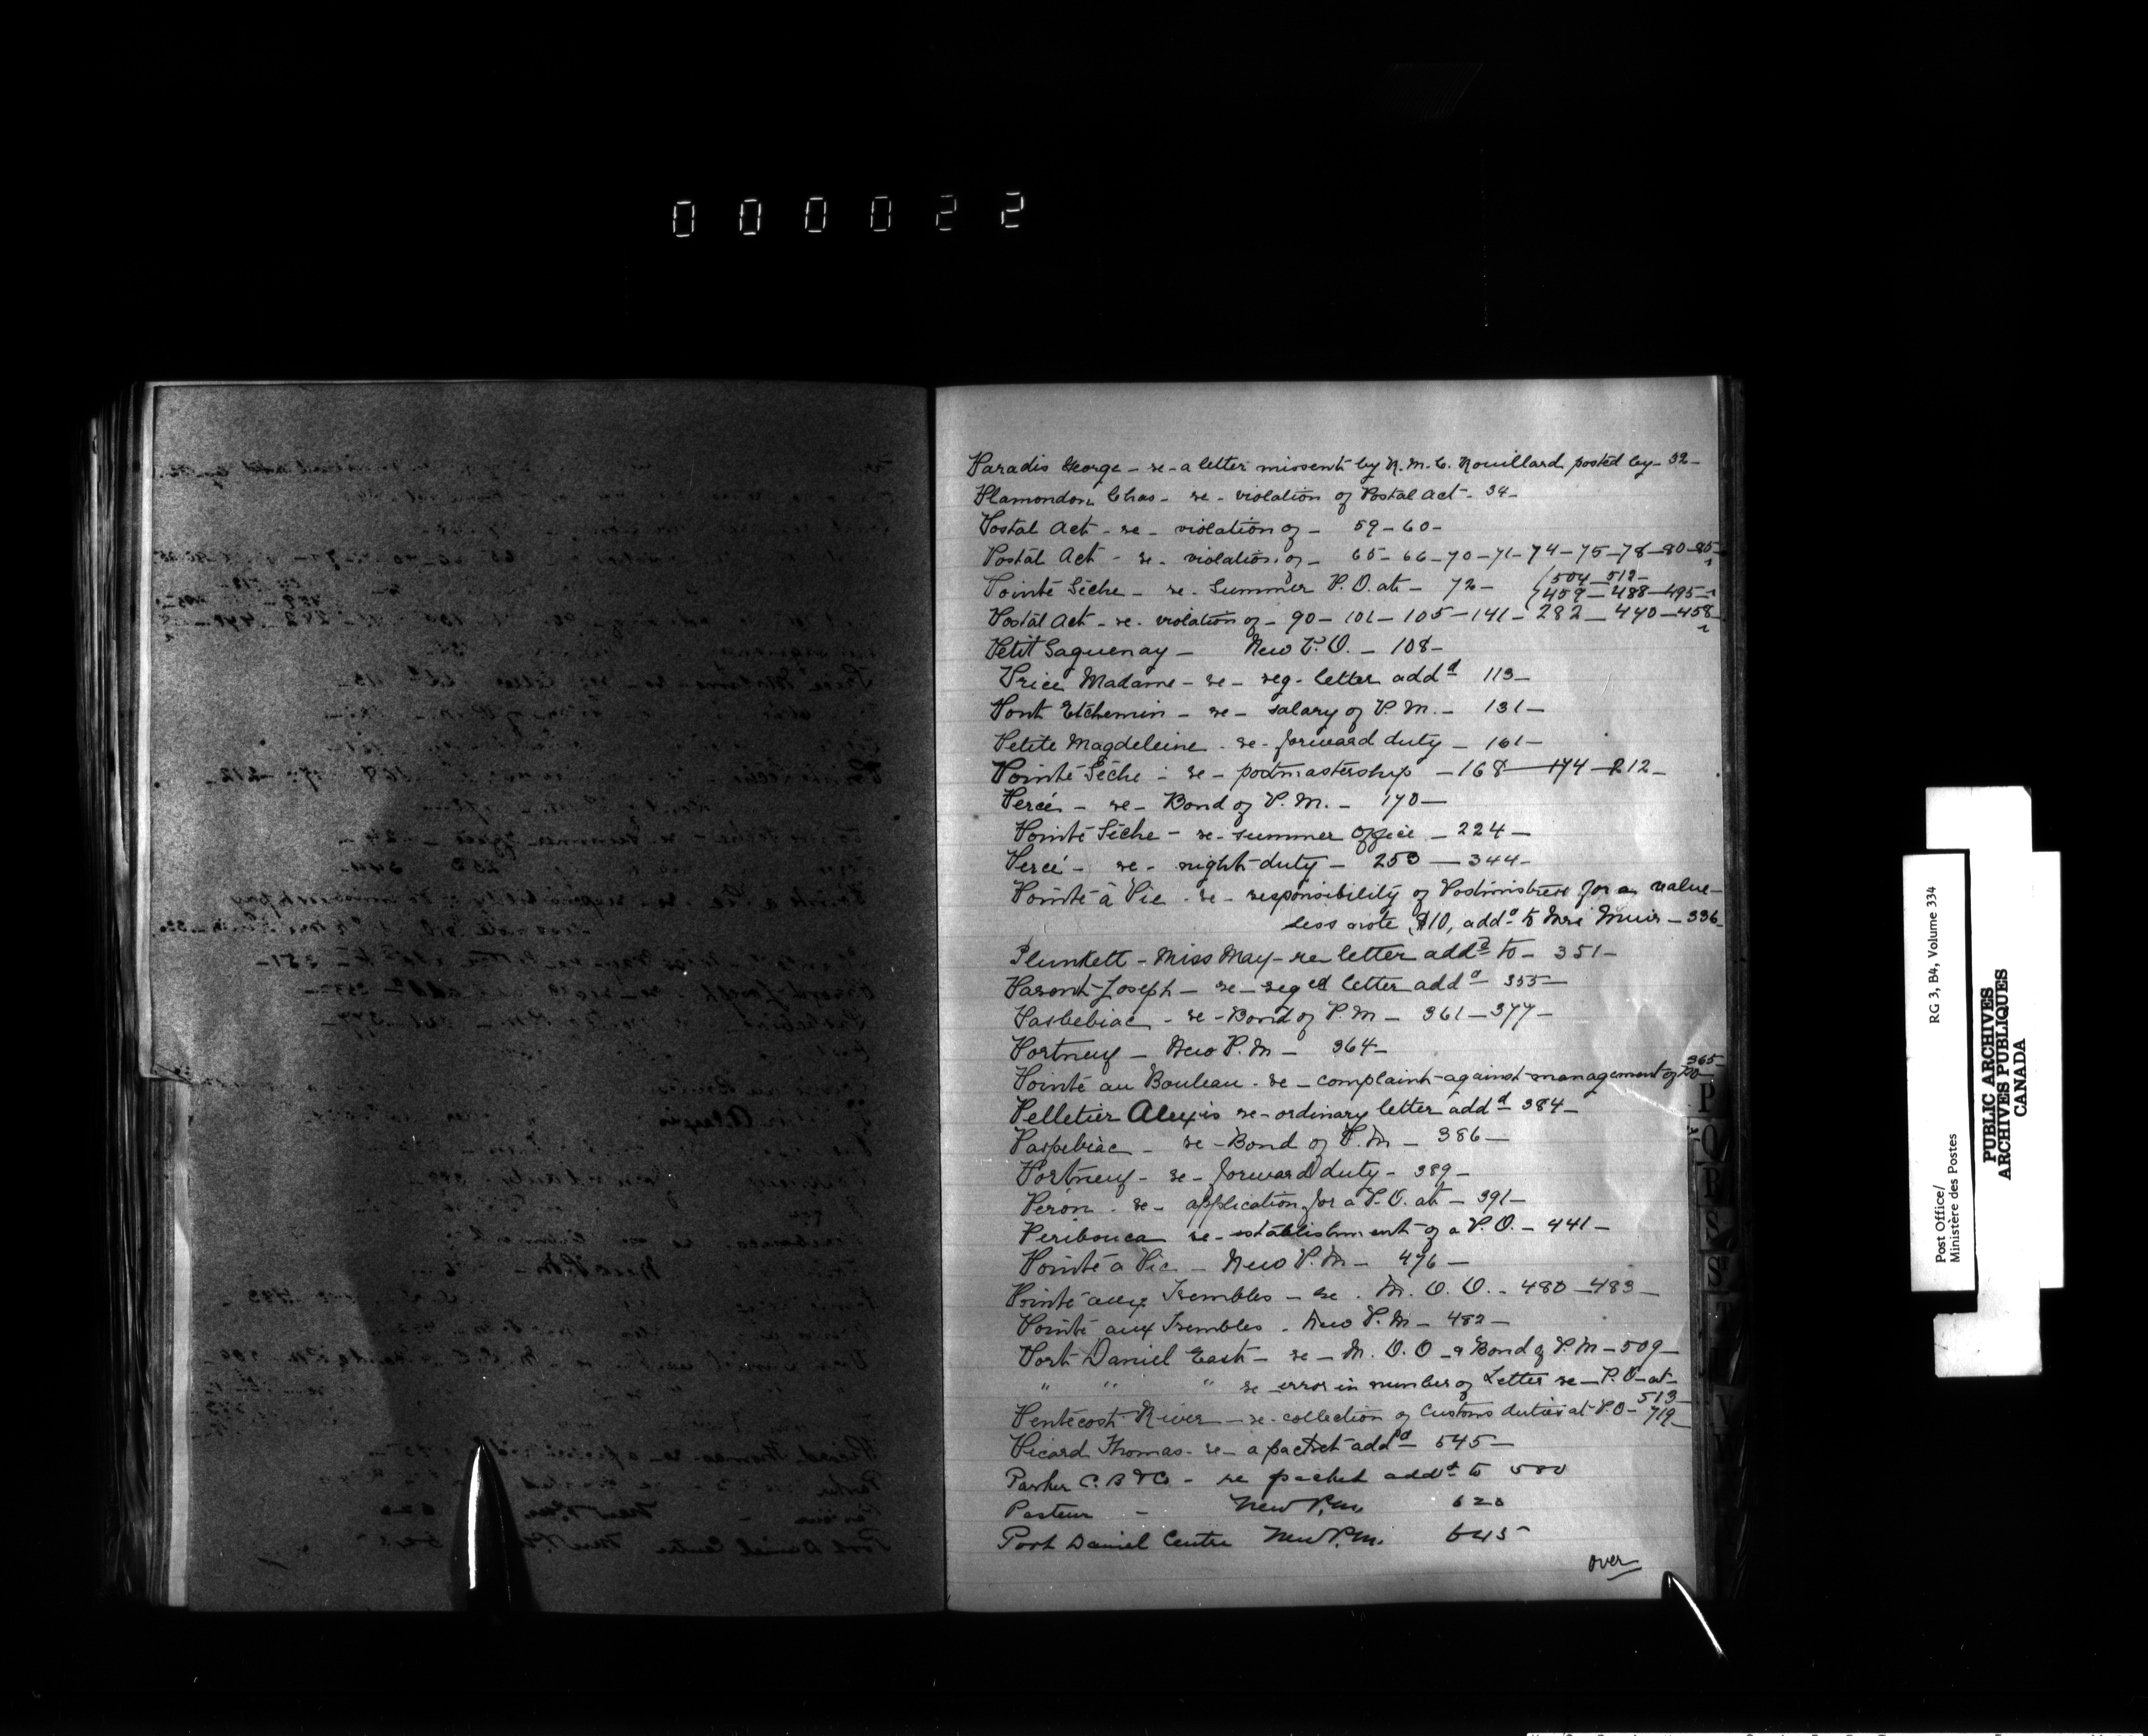 000022
Paradis George - re - a letter missent by R. M. C. Rouillard posted by - 32 -
Plamondon Chas - re - violation of Postal Act - 34 -
Postal Act - re - violation of - 59 - 60 -
Postal Act - re - violation of - 65 - 66 - 70 - 71 - 74 - 75 - 78 - 80 - 85 -
Pointe Sèche - re - Summer P.O. at - 72 - (504 - 512 -
(459 - 488 - 495 -
Postal Act - re - violation of - 90 - 101 - 105 - 141 - 282 - 440 - 458
Petit Saguenay - New P.O. - 108 -
Price Madame - re - reg. letter addd 113 -
Pont Etchemin - re - salary of P.M. - 131 -
Petite Magdeleine - re - forward duty - 161 -
Pointe Sèche - re - postmastership - 168 - 174 - 212 -
Percé - re - Bond of P.M. - 170 -
Pointe Sèche - re - summer office - 224 -
Percé - re - night duty - 253 - 344 -
Pointe à Pic - re - responsibility of Postmistress for a value-
less note $10, addd to Mrs Muir - 336
Plunkett - Miss May - re letter addd to - 351 -
Parent Joseph - re - reged letter addd - 355 -
Pasbebiac - re - Bond of P.M - 361 - 377 -
Portneuf - New P.M - 364 -
Pointe au Bouleau - re - complaint against management of PO 365
Pelletier Alexis re - ordinary letter addd - 384 -
Paspebiac - re - Bond of P.M - 386 -
Portneuf - re - forward duty - 389 -
Péron - re - application for a P.O. at - 391 -
Peribonca re - establishment of a P.O. - 441 -
Pointe à Pic - New P.M - 476 -
Pointe aux Trembles - re - M.O.O. - 480 - 483 -
Pointe aux Trembles - New P.M - 482 -
Port Daniel East - re - M.O.O - & Bond of P.M - 509 -
" " " re error in number of Letter re - P.O - at -
513 -
Pentecost River - re - collection of Customs duties at P.O - 719 -
Picard Thomas - re - a packet addd - 545 -
Parker C. B & Co - re packet addd to 580
Pasteur - New P.M. 620
Port Daniel Centre New P.M. 645
over
P
Q
R
S
V
Post Office/
Ministère des Postes
RG 3, B4, Volume 334
PUBLIC ARCHIVES
ARCHIVES PUBLIQUES
CANADA